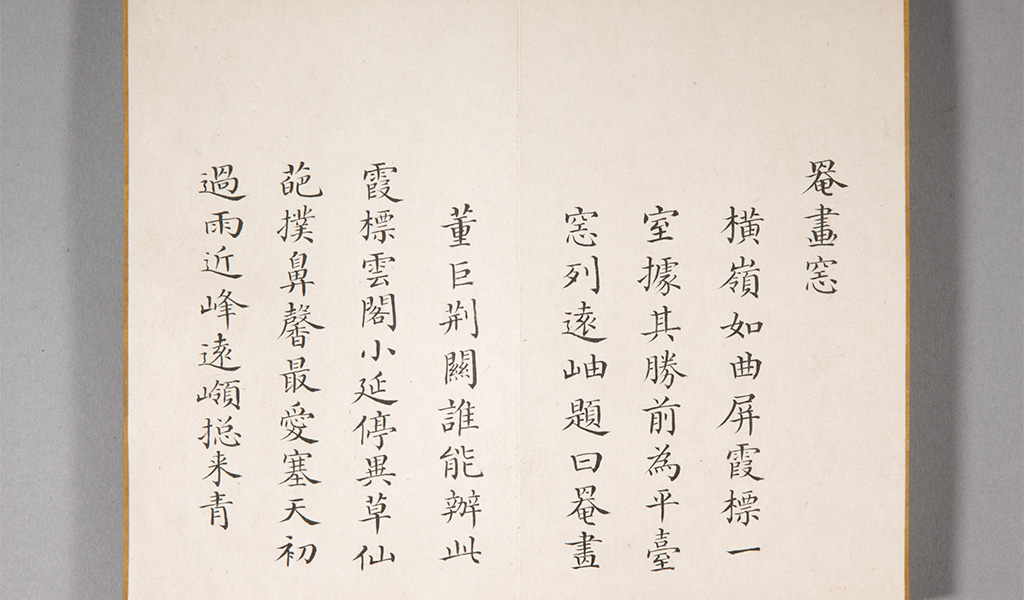 罨畫窓
橫嶺如曲屏霞標一
室據其勝前為平臺
窓列遠岫題曰罨畫
董巨荆關誰能辦此
霞標雲閣小延停異草仙
葩撲鼻馨最愛塞天初
過雨近峰遠嶺捴来青